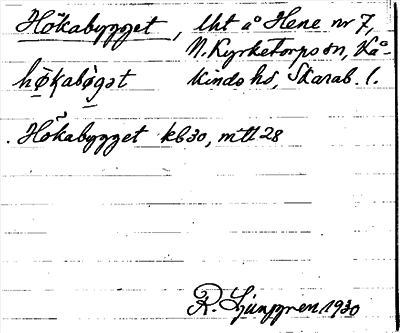 Hökabygget, lht å Hene nr 7,
N. Kyrketorps sn, Kå-
hø̄kabø̀gət kinds hd, Skarab. l.
Hökabygget kb 30, mtl 28
R. Ljunggren 1930